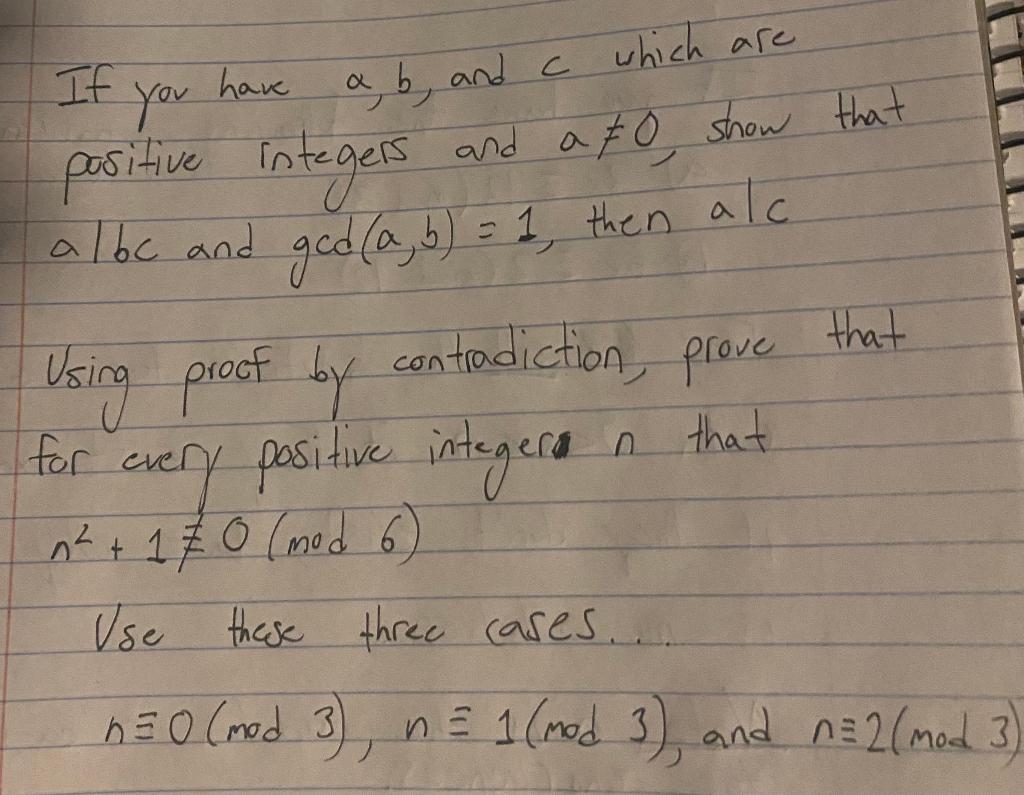 If you have a, b, and c which are
positive integers and a ≠ 0, show that
a|bc and gcd(a,b) = 1, then a|c
Using proof by contradiction, prove that
for every positive integer n that
n² + 1 ≢ 0 (mod 6)
Use these three cases....
n ≡ 0 (mod 3), n ≡ 1 (mod 3), and n ≡ 2 (mod 3)